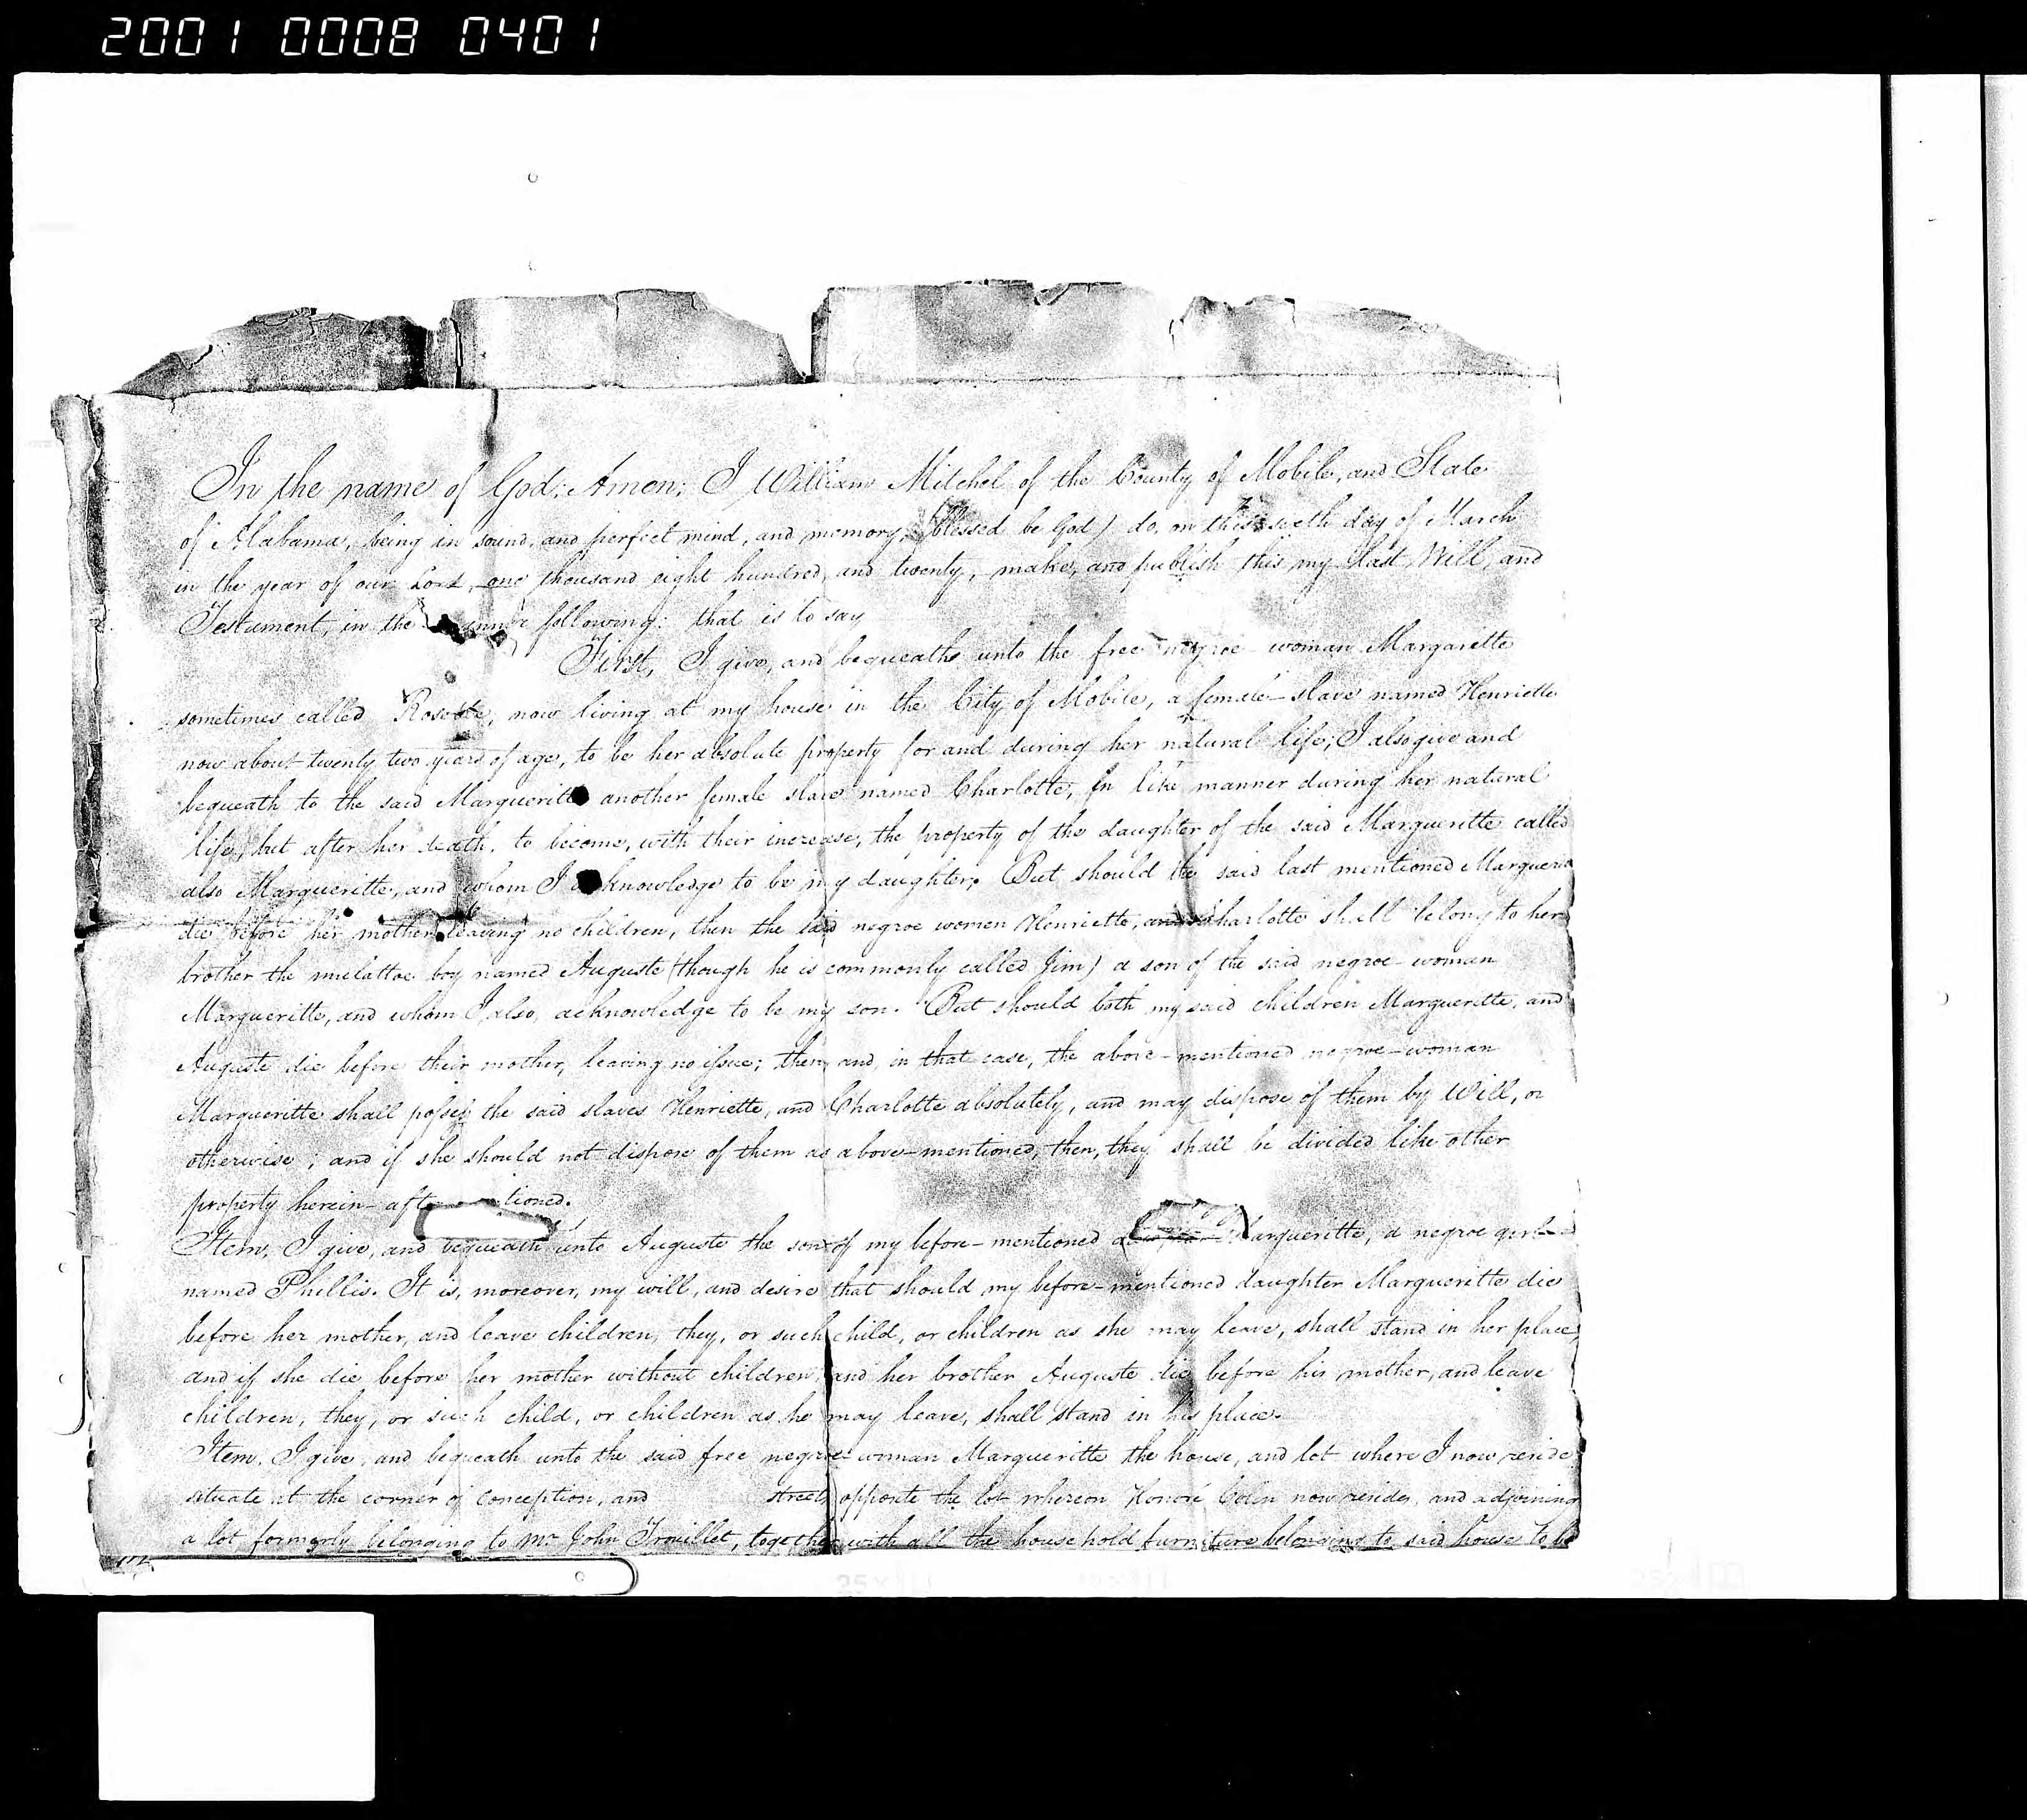 2001 0008 0401
In the name of God; Amen; I William Mitchel of the County of Mobile, and State
of Alabama, being in sound, and perfect mind, and memory, (blessed be God) do, on this sixth day of March
in the year of our Lord, one thousand eight hundred, and twenty, make, and publish this my last Will, and
Testament, in the following: that is to say
First, I give, and bequeath unto the free negroe woman Margaritte
sometimes called now living at my house in the City of Mobile, a female slave named Henriette
now about twenty two years of age, to be her absolute property for and during her natural life; I also give and
bequeath to the said Margueritte another female slave named Charlotte, in like manner during her natural
life, but after her death, to become, with their increase, the property of the daughter of the said Margueritte called
also Margueritte, and whom I acknowledge to be my daughter. But should the said last mentioned Margueri
die before her mother leaving no children, then the said negroe women Henriette, and Charlotte shall belong to her
brother the mulattoe boy named Auguste (though he is commonly called Jim) a son of the said negroe-woman
Margueritte, and whom I, also, acknowledge to be my son. But should both my said children Margueritte, and
Auguste die before their mother, leaving no issue; then, and, in that case, the above-mentioned negroe-woman
Margueritte shall possess the said slaves Henriette, and Charlotte absolutely, and may dispose of them by Will, or
otherwise; and if she should not dispose of them as above-mentioned, then, they shall be divided like other
property herein-aft tioned.
Item. I give, and bequeath unto Auguste the son of my before-mentioned argueritte, a negroe girl
named Phillis. It is, moreover, my will, and desire that should my before-mentioned daughter Margueritte die
before her mother, and leave children, they, or such child, or children as she may leave, shall stand in her place,
and if she die before her mother without children, and her brother Auguste die before his mother, and leave
children, they, or such child, or children as he may leave, shall stand in his place.
Item. I give, and bequeath unto the said free negroe-woman Margueritte the house, and lot where I now reside
situate at the corner of Conception, and streets opposite the lot whereon Honoré Colin now resides, and adjoining
a lot formerly belonging to Mr. John Trouillet, together with all the household furniture belonging to said house to be